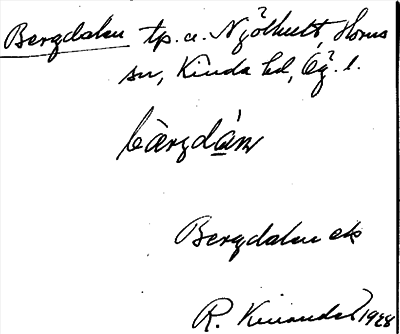 Bergdalen tp. u. Nyhult, Horns
sn, Kinda hd, Ög. l.
bàrgdán
Bergdalen ek
R. Kinander 1928